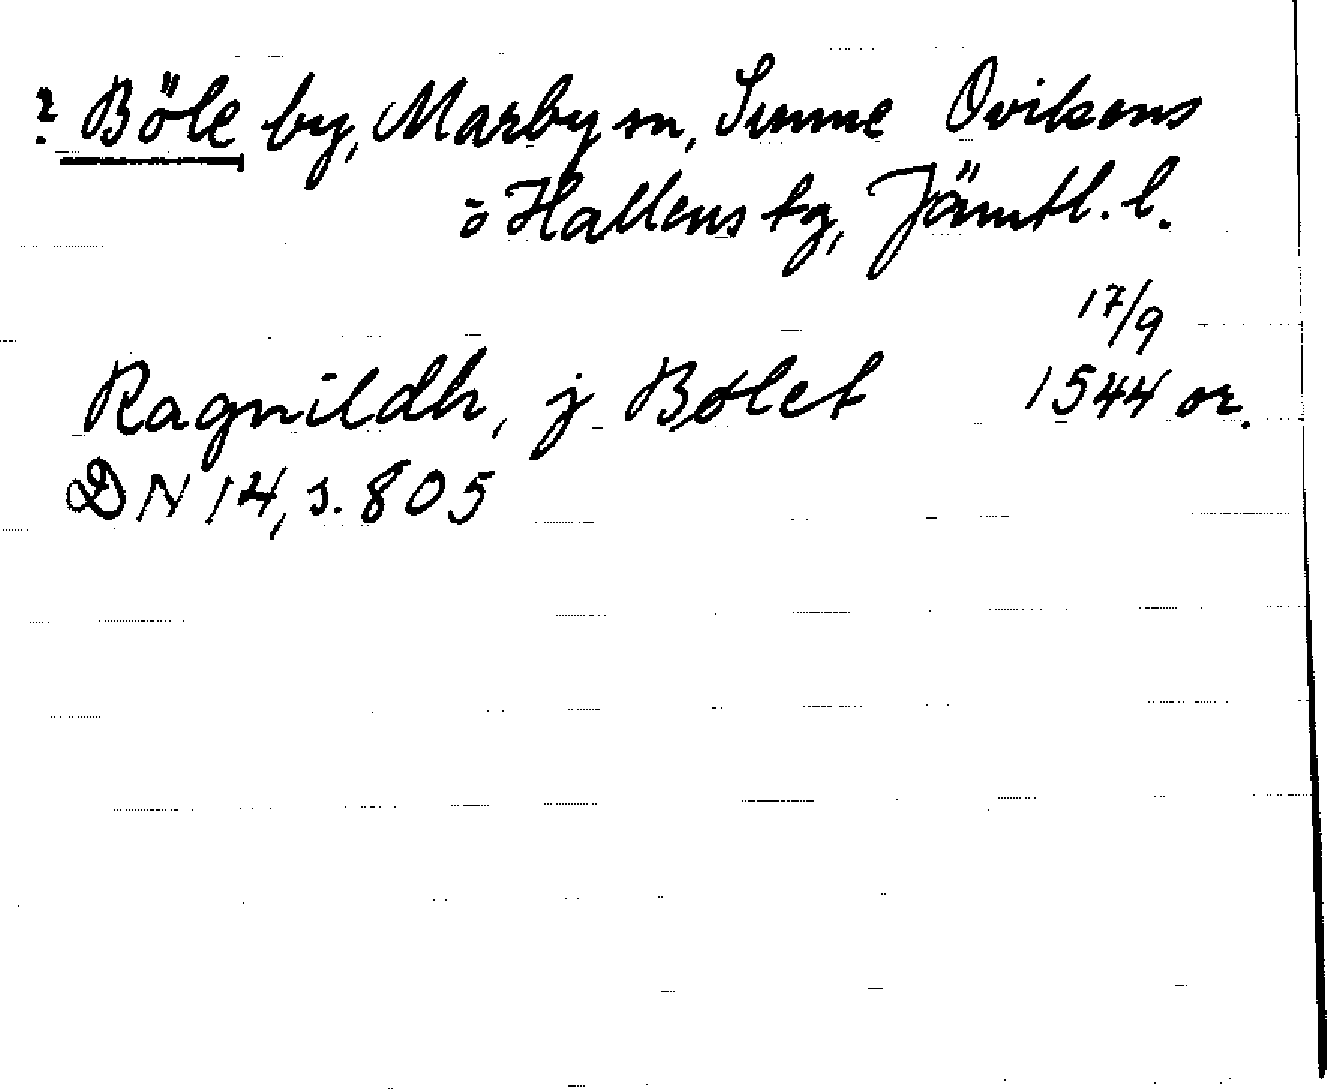 ? Böle by, Marby sn, Sunne Ovikens
o Hallens tg, Jämtl. l.
17/9
Ragnildh, j Bølet 1544 or.
DN 14, s. 805